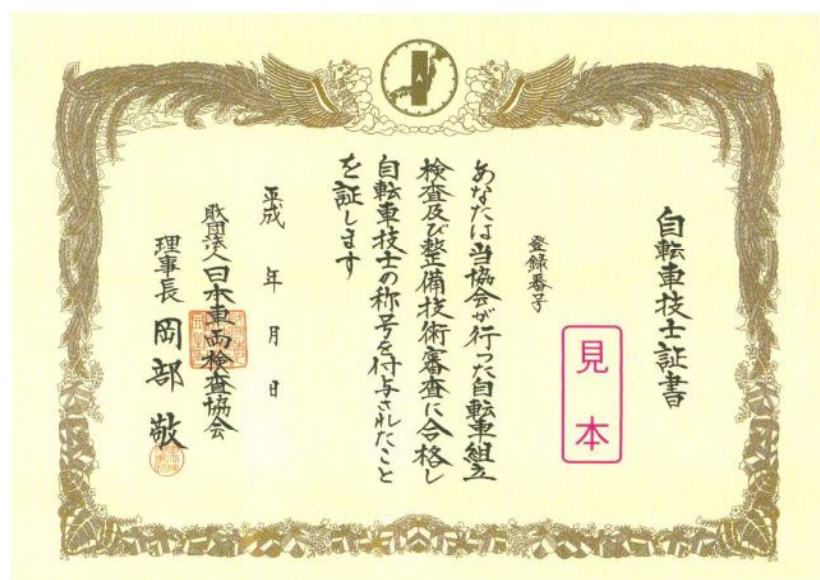 自転車技士証書
見本
登録番号
あなたは当協会が行った自転車組立
検査及び整備技術審査に合格し
自転車技士の称号を付与されたこと
を証します
平成 年 月 日
財団法人日本車両検査協会
理事長 岡部 敬